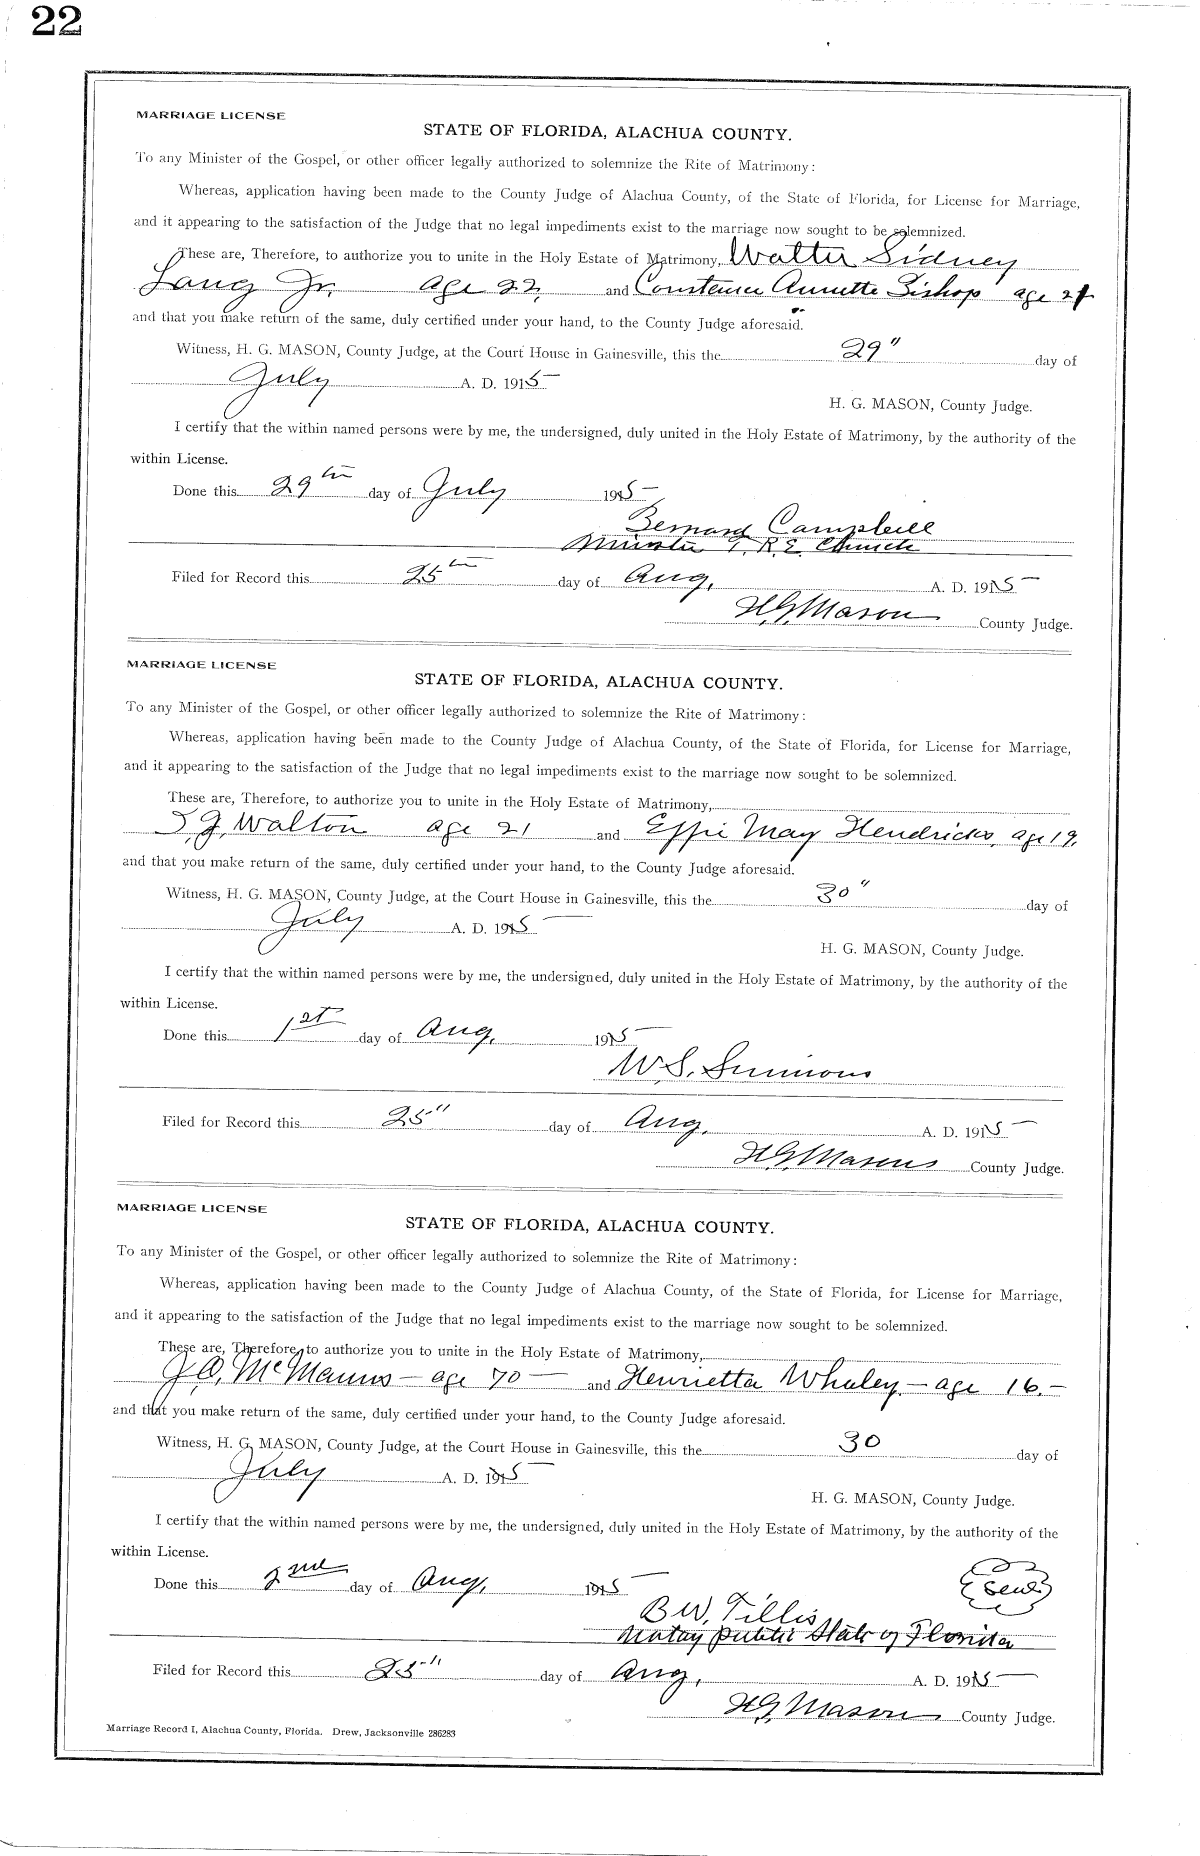 22
MARRIAGE LICENSE
STATE OF FLORIDA, ALACHUA COUNTY.
To any Minister of the Gospel, or other officer legally authorized to solemnize the Rite of Matrimony:
Whereas, application having been made to the County Judge of Alachua County, of the State of Florida, for License for Marriage,
and it appearing to the satisfaction of the Judge that no legal impediments exist to the marriage now sought to be solemnized.
These are, Therefore, to authorize you to unite in the Holy Estate of Matrimony, Walter Sidney
Lang Jr. age 22, and Constance Annette Bishop age 21
and that you make return of the same, duly certified under your hand, to the County Judge aforesaid.
Witness, H. G. MASON, County Judge, at the Court House in Gainesville, this the 29" day of
July A. D. 1915
H. G. MASON, County Judge.
I certify that the within named persons were by me, the undersigned, duly united in the Holy Estate of Matrimony, by the authority of the
within License.
Done this 29th day of July 1915
Bernard Campbell
Minister T. R. E. Church
Filed for Record this 25th day of Aug, A. D. 1915
H.G. Mason County Judge.
MARRIAGE LICENSE
STATE OF FLORIDA, ALACHUA COUNTY.
To any Minister of the Gospel, or other officer legally authorized to solemnize the Rite of Matrimony:
Whereas, application having been made to the County Judge of Alachua County, of the State of Florida, for License for Marriage,
and it appearing to the satisfaction of the Judge that no legal impediments exist to the marriage now sought to be solemnized.
These are, Therefore, to authorize you to unite in the Holy Estate of Matrimony,
Walton age 21 and Effie May Hendricks, age 19.
and that you make return of the same, duly certified under your hand, to the County Judge aforesaid.
Witness, H. G. MASON, County Judge, at the Court House in Gainesville, this the 30" day of
July A. D. 1915
H. G. MASON, County Judge.
I certify that the within named persons were by me, the undersigned, duly united in the Holy Estate of Matrimony, by the authority of the
within License.
Done this 1st day of Aug. 1915
W. S. Simmons
Filed for Record this 25" day of Aug. A. D. 1915
H.G. Mason County Judge.
MARRIAGE LICENSE
STATE OF FLORIDA, ALACHUA COUNTY.
To any Minister of the Gospel, or other officer legally authorized to solemnize the Rite of Matrimony:
Whereas, application having been made to the County Judge of Alachua County, of the State of Florida, for License for Marriage,
and it appearing to the satisfaction of the Judge that no legal impediments exist to the marriage now sought to be solemnized.
These are, Therefore, to authorize you to unite in the Holy Estate of Matrimony,
J. O. McManus - age 70 - and Henrietta Whaley - age 16. -
and that you make return of the same, duly certified under your hand, to the County Judge aforesaid.
Witness, H. G. MASON, County Judge, at the Court House in Gainesville, this the 30 day of
July A. D. 1915
H. G. MASON, County Judge.
I certify that the within named persons were by me, the undersigned, duly united in the Holy Estate of Matrimony, by the authority of the
within License.
Done this 2nd day of Aug, 1915
Seal
B. W. Tillis
Notay public State of Florida
Filed for Record this 25" day of Aug, A. D. 1915
H.G. Mason County Judge.
Marriage Record I, Alachua County, Florida. Drew, Jacksonville 286283